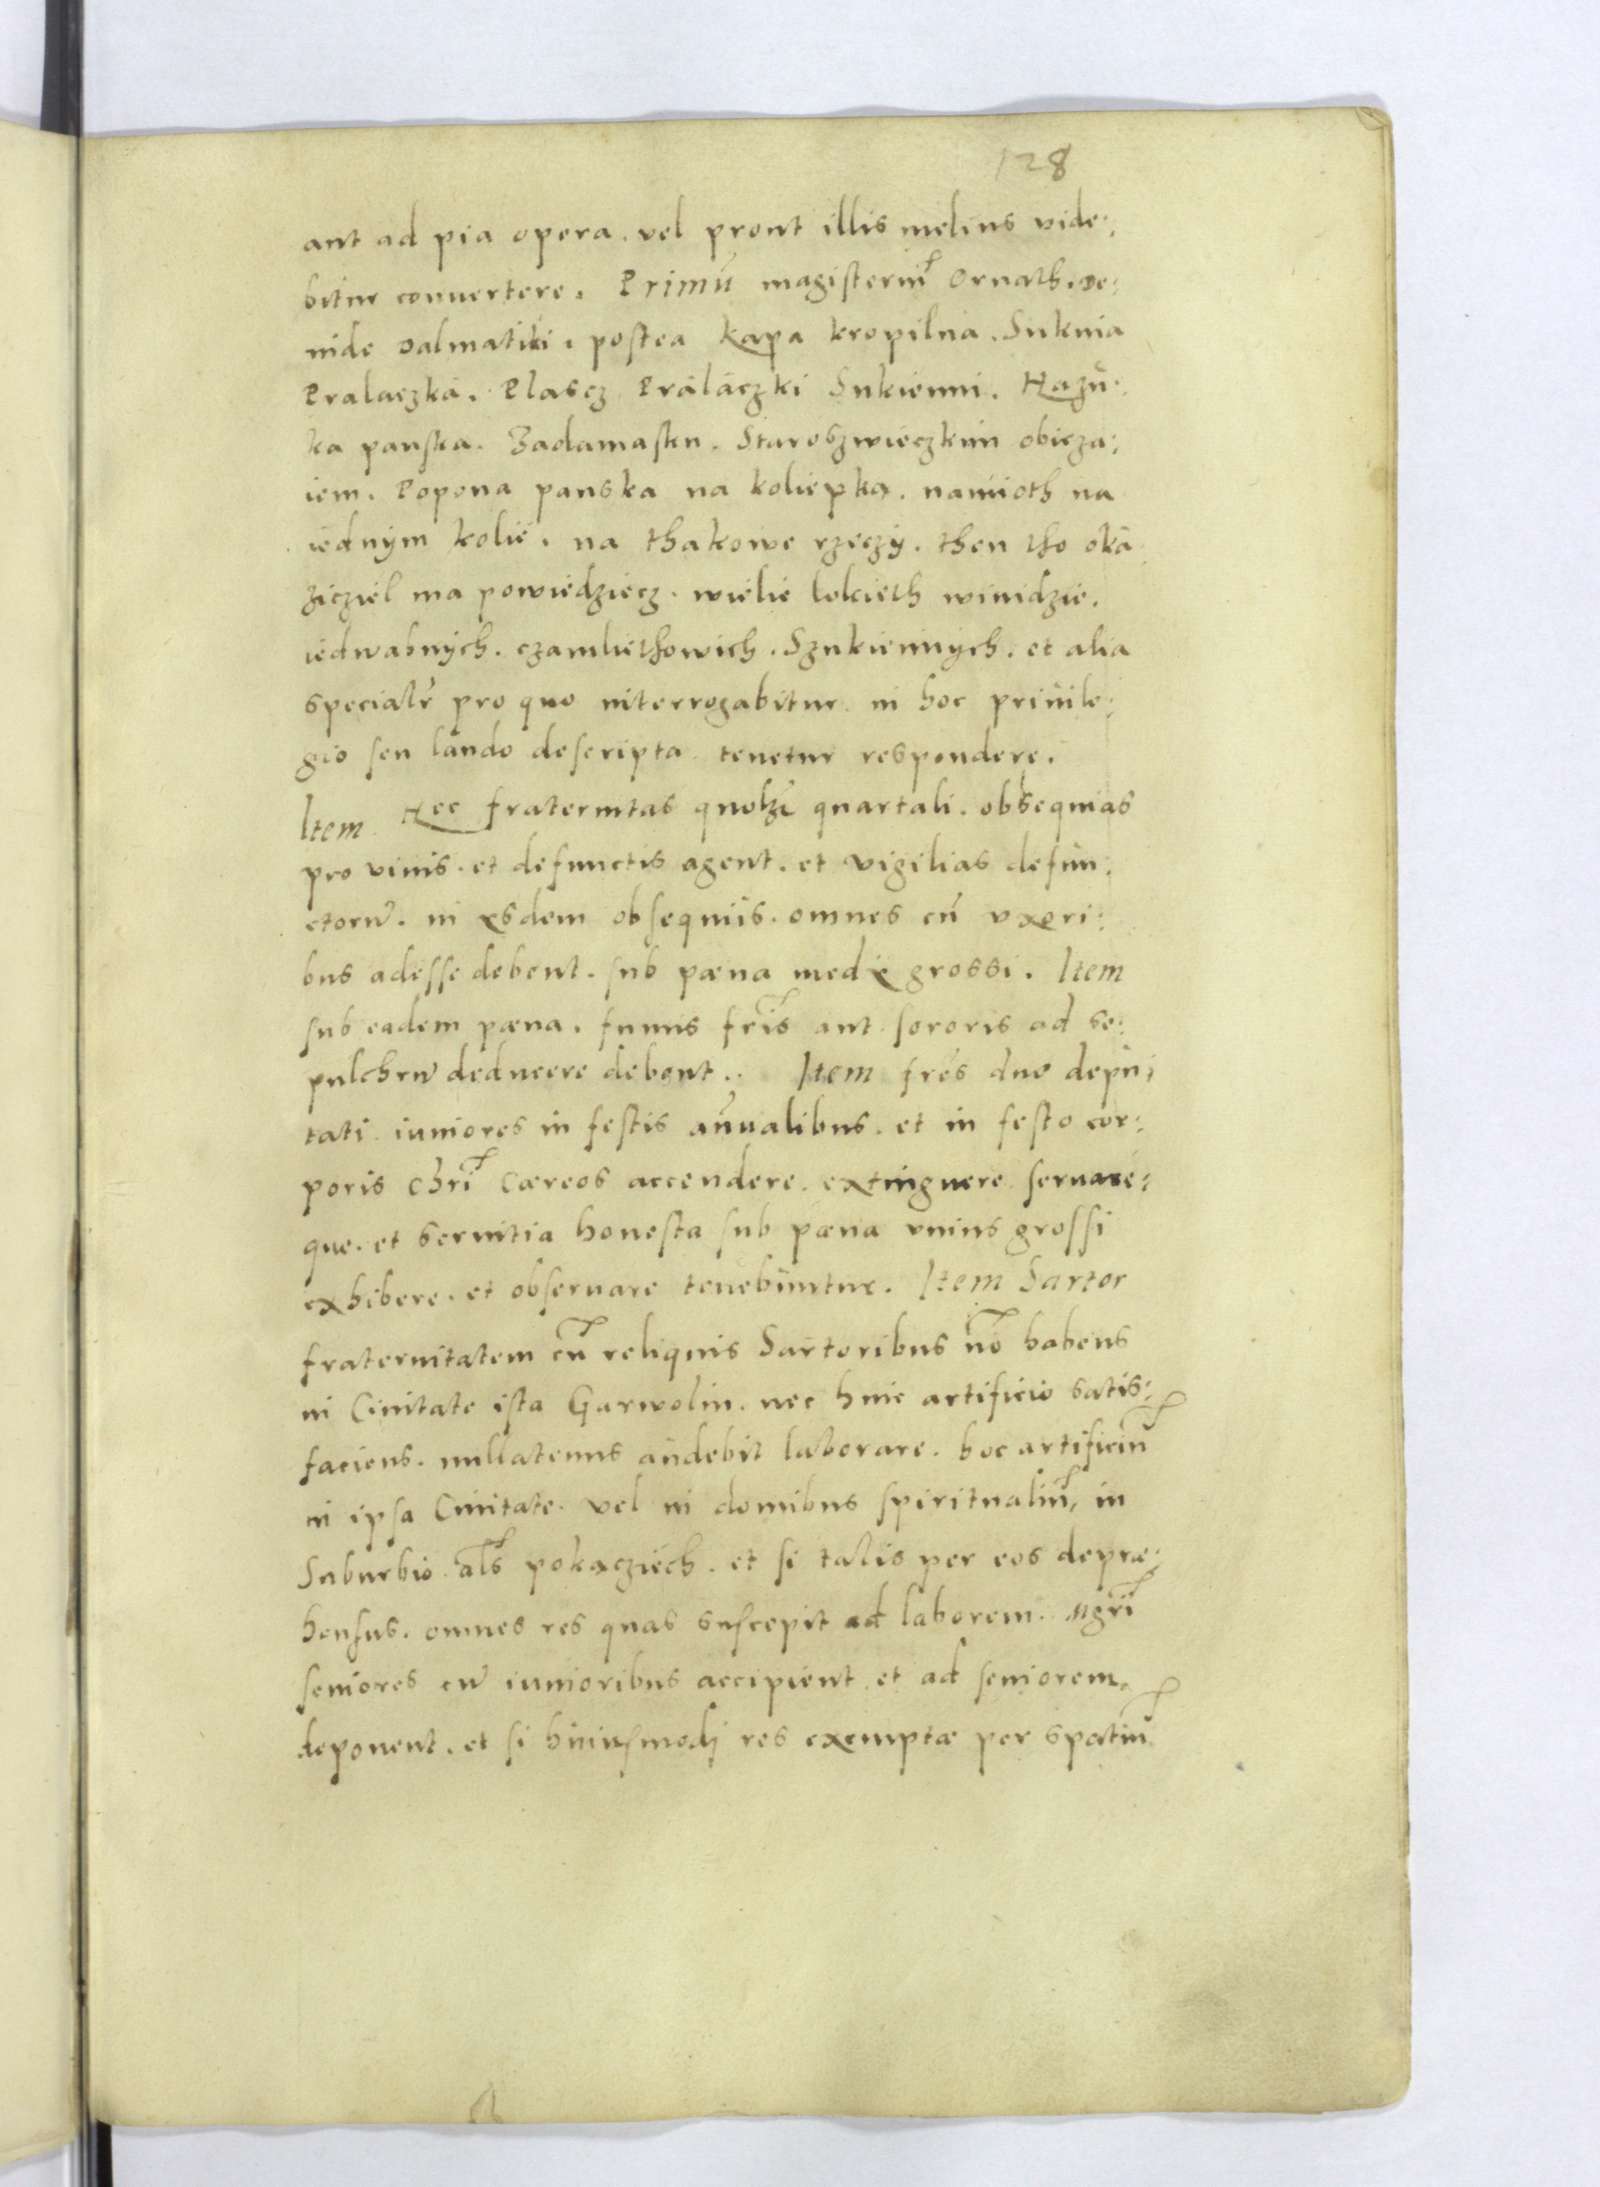 128
aut ad pia opera. vel prout illis melius vide:
bitur convertere. Primū magisteriū Ornath. De:
inde Dalmatiki. postea Kapa kropilna. Suknia
Pralaczka. Plascz Pralaczki Sukienni. Hazu:
ka panska. Zadamasku. Staroszwieczkim obicza:
iem. Popona panska na koliepką. namioth na
iednym kolie. na thakowe rzeczy. then tho oka
ziciel ma powiedziecz. wielie lokieth winidzie.
iedwabnych. czamliethowich. Szukiennych. et alia
specialr pro quo interrogabitur in hoc priuile:
gio seu laudo descripta tenetur respondere.
Item Hec fraternitas quolʒ quartali. obsequias
pro viuis. et defunctis agent. et vigilias defun:
ctorū. in ęsdem obsequiis. omnes cū vxori:
bus adesse debent. sub pæna medię grossi. Item
sub eadem pæna. funus fr̄is aut sororis ad se:
pulchrū deducere debent.. Item fr̄es duo depu:
tati iuniores in festis an̄ualibus. et in festo cor:
poris Chr̄i Cæreos accendere. extinguere seruare:
que. et seruitia honesta sub pæna vnius grossi
exhibere. et obseruare tenebuntur. Item Sartor
fraternitatem cū reliquis Sartoribus nō habens
in Ciuitate ista Garwolin. nec huic artificio satis:
faciens. nullatenus audebit laborare. hoc artificiū
in ipsa Ciuitate. vel in domibus spiritualiū, in
Suburbio al̄s pokącziech. et si talis per eos depræ:
hensus. omnes res quas suscepit ad laborem. Mgr̄i
seniores cū iunioribus accipient et ad seniorem.
deponent. et si huiusmodj res exemptæ per spatiū